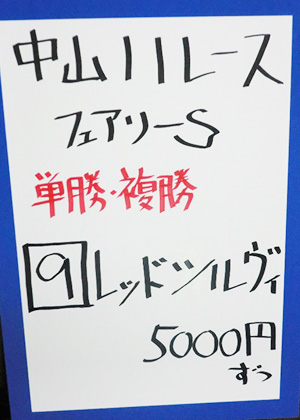 中山11レース
フェアリーS
単勝・複勝
9 レッドシルヴィ
5000円
ずつ